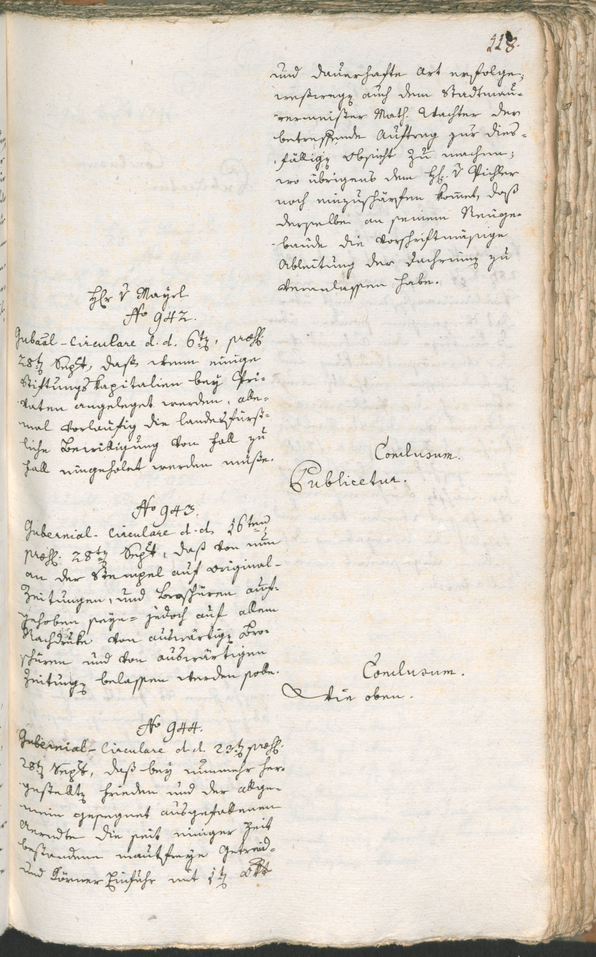 118.
und dauerhafte Art erfolge;
weßwegen auch dem Stadtmau-
rermeister Math. Wachter der
betreffende Auftrag zur dies-
fälligen Absicht zu machen;
wo übrigens dem H. v Pichler
noch einzuschärfen kommt, daß
derselbe an seinem Neuge-
bäude die vorschriftmäsige
Ableitung der Dachrinn zu
veranlassen habe.
H. v Mayrl
No 942.
Gubaal-Circulare d. d. 6ten, præs.
28ten Sept, daß, wenn einige
Stiftungskapitalien bey Pri-
vaten angeleget werden, alle-
mal vorläufig die landesfürst-
liche Bewilligung von Fall zu
Fall eingeholet werden müße.
Conclusum.
Publicetur.
No 943.
Gubernial-Circulare d. d. 16ten
præs. 28ten Sept, daß von nun
an der Stempel auf Original-
Zeitungen, und Broschüren auf-
gehoben seye, jedoch auf allen
Nachdrüken von auswärtigen Bro-
schüren und von auswärtigen
Zeitungen belassen werden solle.
Conclusum.
Wie oben.
No 944.
Gubernial-Circulare d. d. 23ten præs.
28ten Sept, daß bey nunmehr her-
gestellten Frieden und der allge-
mein gesegnet ausgefallenen
Aerndte die seit einiger Zeit
bestandene mautfreye Getreid-
und Körner Einfuhr mit 1ten Okt